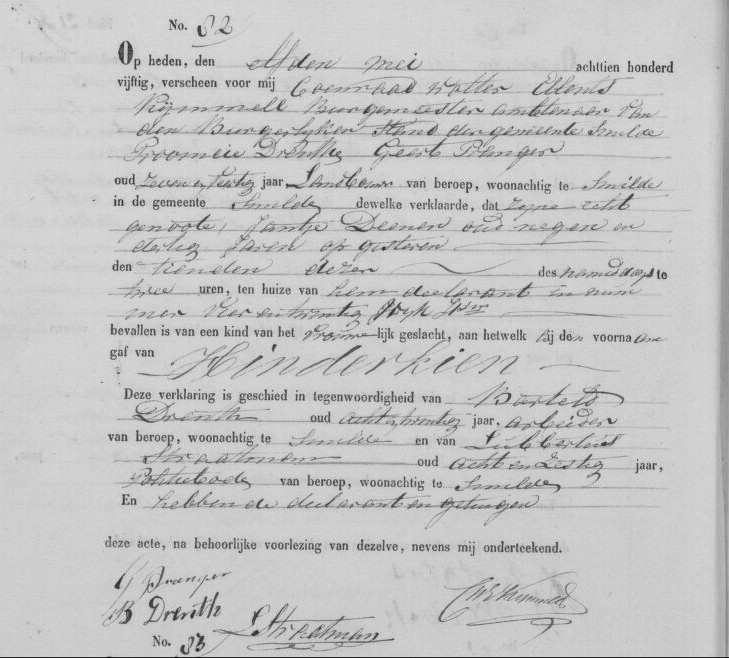 No. 82
Op heden, den elfden mei achttien honderd
vijftig, verscheen voor mij Coenraad Wolter Ellents
Kymmell Burgemeester ambtenaar van
den Burgerlyken Stand der gemeente Smilde
Provincie Drenthe Geert Pranger
oud Zeven en veertig jaar, Landbouwer van beroep, woonachtig te Smilde
in de gemeente Smilde dewelke verklaarde, dat zyne echt
genoote, Jantje Deenen oud negen en
dertig Jaren op gisteren
den tienden dezer des namiddags te
twee uren, ten huize van hem declarant in num
mer vier en twintig Wyk
bevallen is van een kind van het vrouwelijk geslacht, aan hetwelk Hij den voornaam
gaf van Hinderkien
Deze verklaring is geschied in tegenwoordigheid van Barteld
Drenth oud acht en twintig jaar, arbeider
van beroep, woonachtig te Smilde en van Lubbertus
Straatman oud acht en zestig jaar,
van beroep, woonachtig te Smilde
En hebben de declarant en getuigen
deze acte, na behoorlijke voorlezing van dezelve, nevens mij onderteekend.
G Pranger
B Drenth
L Straatman
CWEKymmell
No. 83